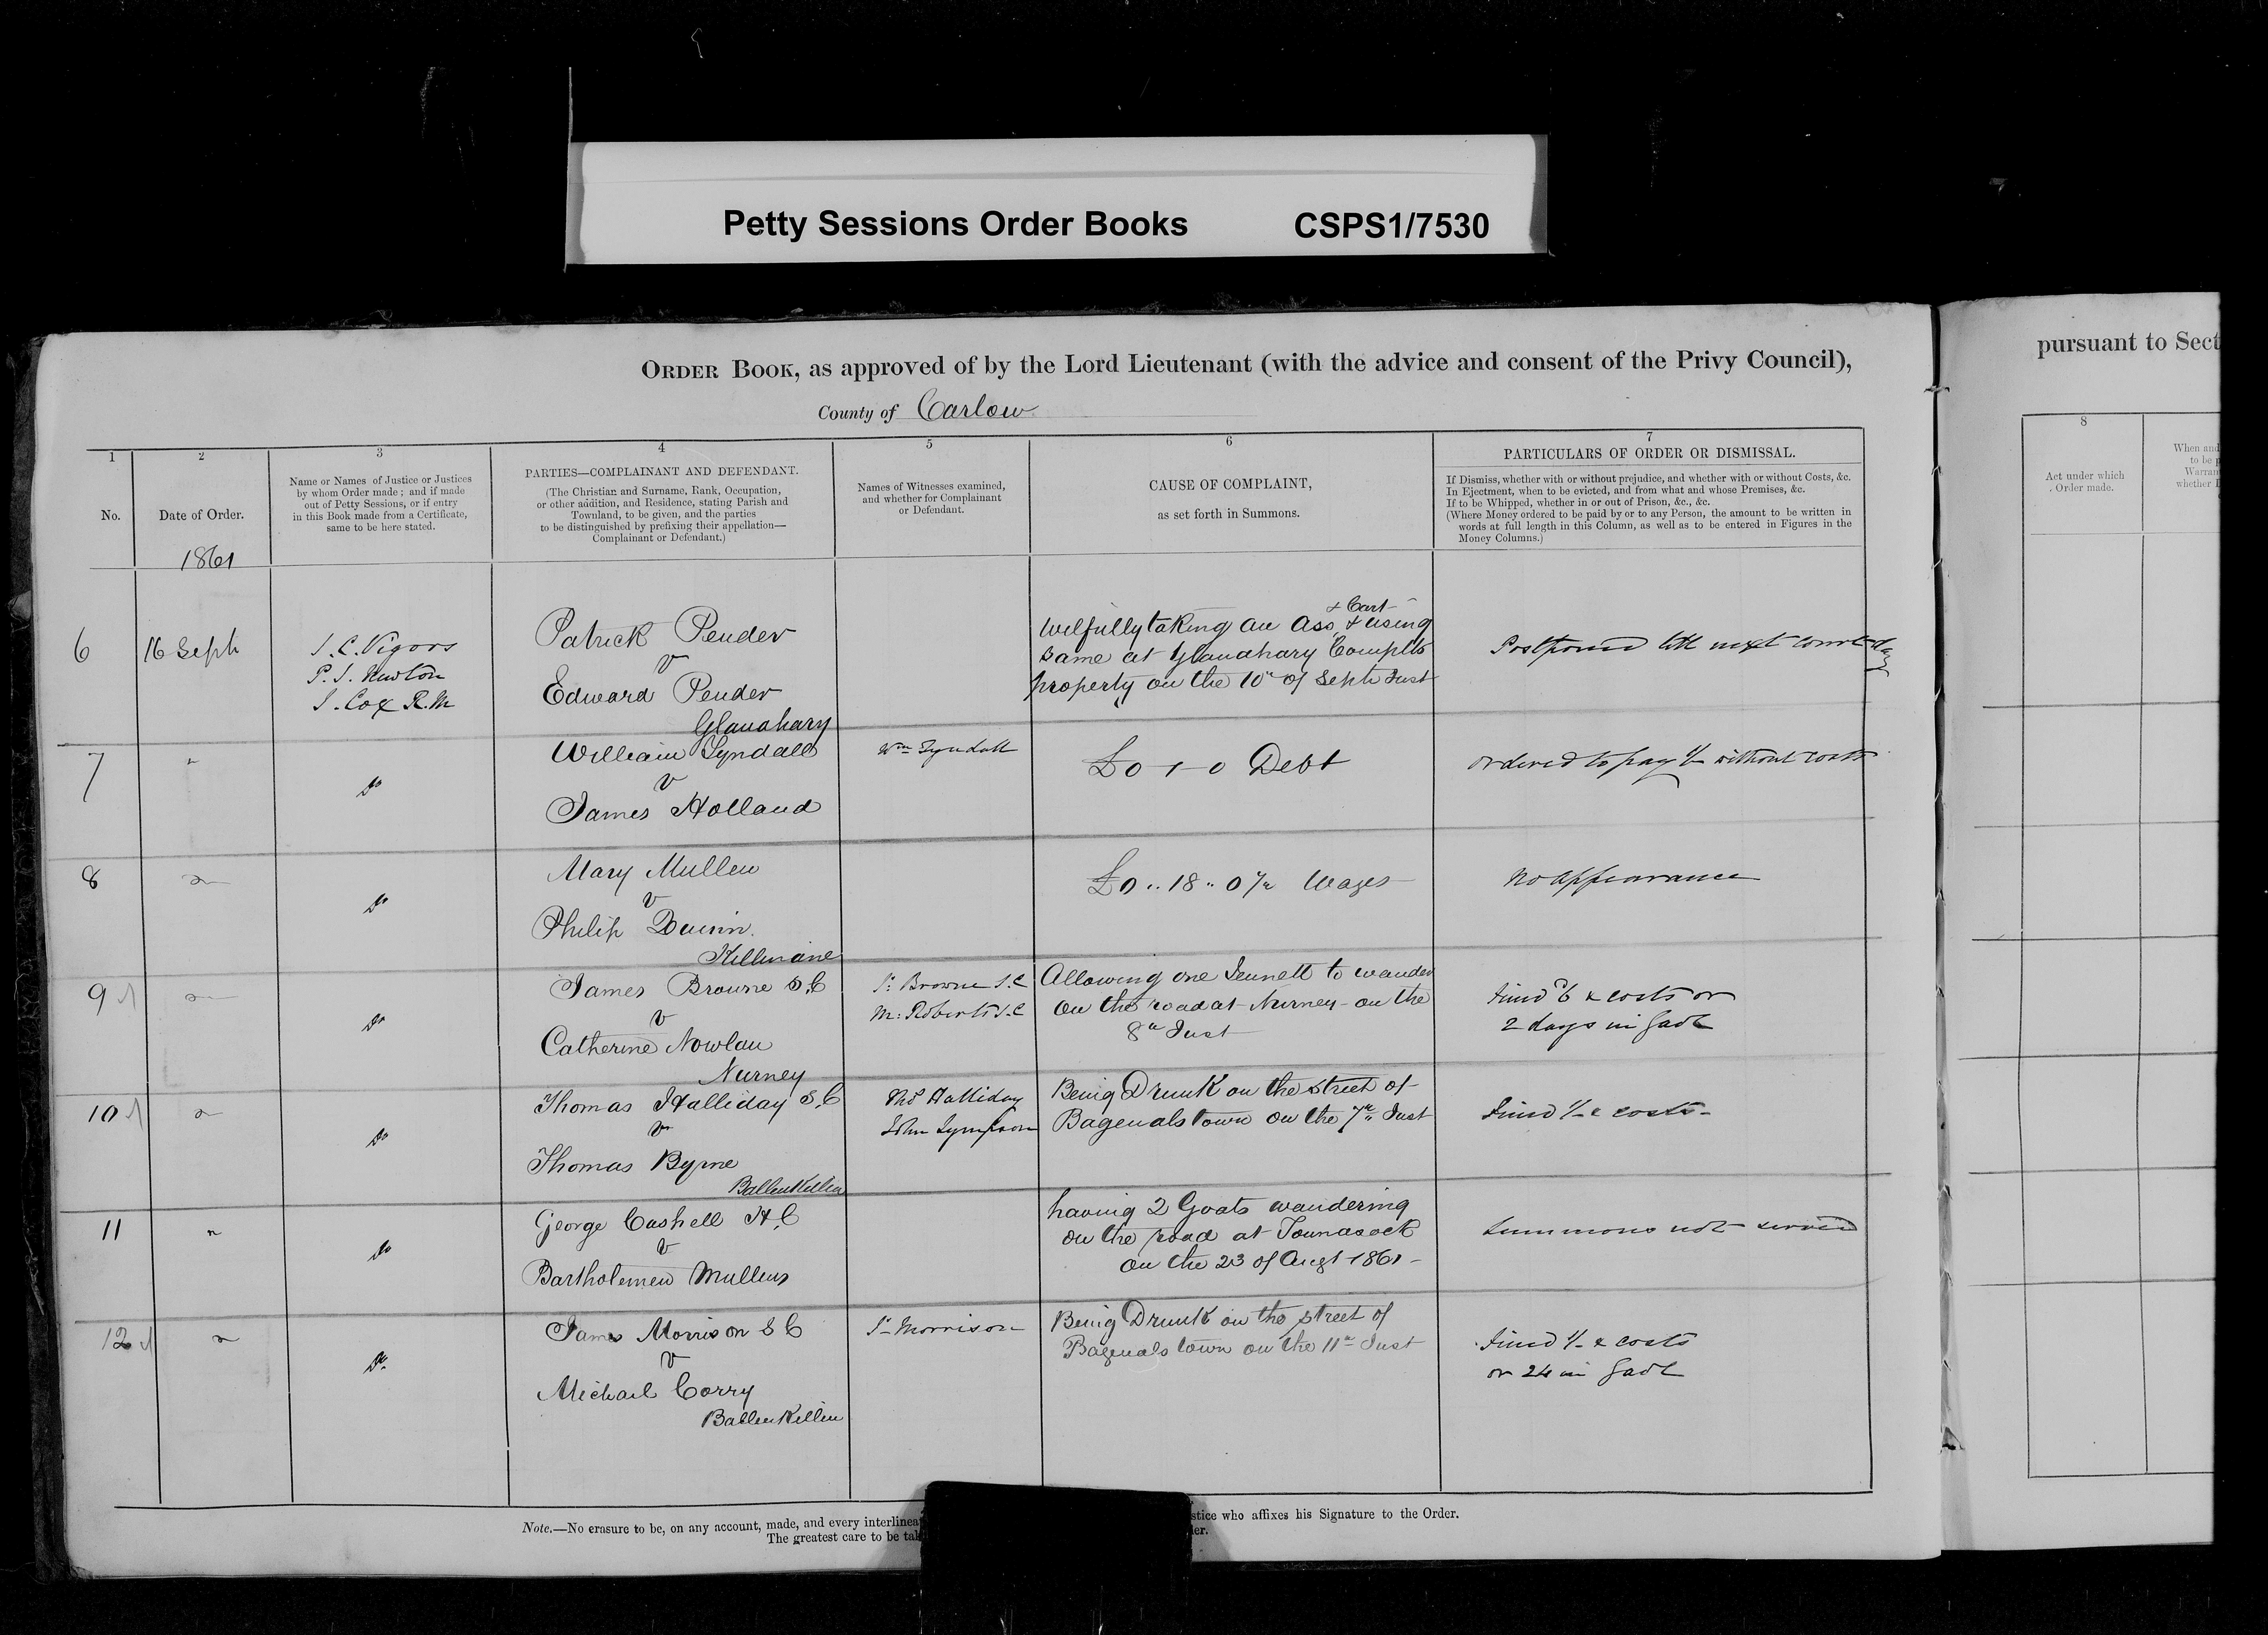 Petty Sessions Order Books CSPS1/7530
ORDER BOOK, as approved of by the Lord Lieutenant (with the advice and consent of the Privy Council),
County of Carlow
pursuant to Sect
1
No.
2
Date of Order.
1861
3
Name or Names of Justice or Justices
by whom Order made; and if made
out of Petty Sessions, or if entry
in this Book made from a Certificate,
same to be here stated.
4
PARTIES—COMPLAINANT AND DEFENDANT.
(The Christian and Surname, Rank, Occupation,
or other addition, and Residence, stating Parish and
Townland, to be given, and the parties
to be distinguished by prefixing their appellation—
Complainant or Defendant.)
5
Names of Witnesses examined,
and whether for Complainant
or Defendant.
6
CAUSE OF COMPLAINT,
as set forth in Summons.
7
PARTICULARS OF ORDER OR DISMISSAL.
If Dismiss, whether with or without prejudice, and whether with or without Costs, &c.
In Ejectment, when to be evicted, and from what and whose Premises, &c.
If to be Whipped, whether in or out of Prison, &c., &c.
(Where Money ordered to be paid by or to any Person, the amount to be written in
words at full length in this Column, as well as to be entered in Figures in the
Money Columns.)
8
Act under which
Order made.
When and
to be p
Warran
whether D
6
16 Septr
J. C. Vigors
P. J. Newton
J. Cox R.M
Patrick Pender
v
Edward Pender
Glanahary
& Cart
Wilfully taking an Ass & using
Same at Glanahary Complts
property on the 10th of Sept Inst
Postponed till next Court day
7
"
Do
William Tyndall
v
James Holland
Wm Tyndall
£0-1-0 Debt
ordered to pay 1/- without costs
8
Do
Mary Mullen
v
Philip Quinn
Killinane
£0 " 18 " 0 1/2 Wages
No appearance
9
Do
James Browne S.C
v
Catherine Nowlan
Nurney
Js Browne S.C
M: Roberts S.C
Allowing one Jennett to wander
on the road at Nurney on the
8th Inst
Fined 6d & costs or
2 days in Gaol
10
Do
Thomas Halliday S.C
v
Thomas Byrne
Ballenkillen
Thos Halliday
John Sympson
Being Drunk on the street of
Bagenalstown on the 7th Inst
Fined 1/- & costs-
11
"
Do
George Cashell H.C
v
Bartholemew Mullens
having 2 Goats wandering
on the road at Tounasock
on the 23 of Augt 1861-
Summons not served
12
Do
James Morrison S C
v
Michael Corry
Ballenkillen
Js Morrison
Being Drunk on the street of
Bagenalstown on the 11th Inst
Fined 1/- & costs
or 24 in Gaol
Note.—No erasure to be, on any account, made, and every interlinea
stice who affixes his Signature to the Order.
The greatest care to be tak
der.